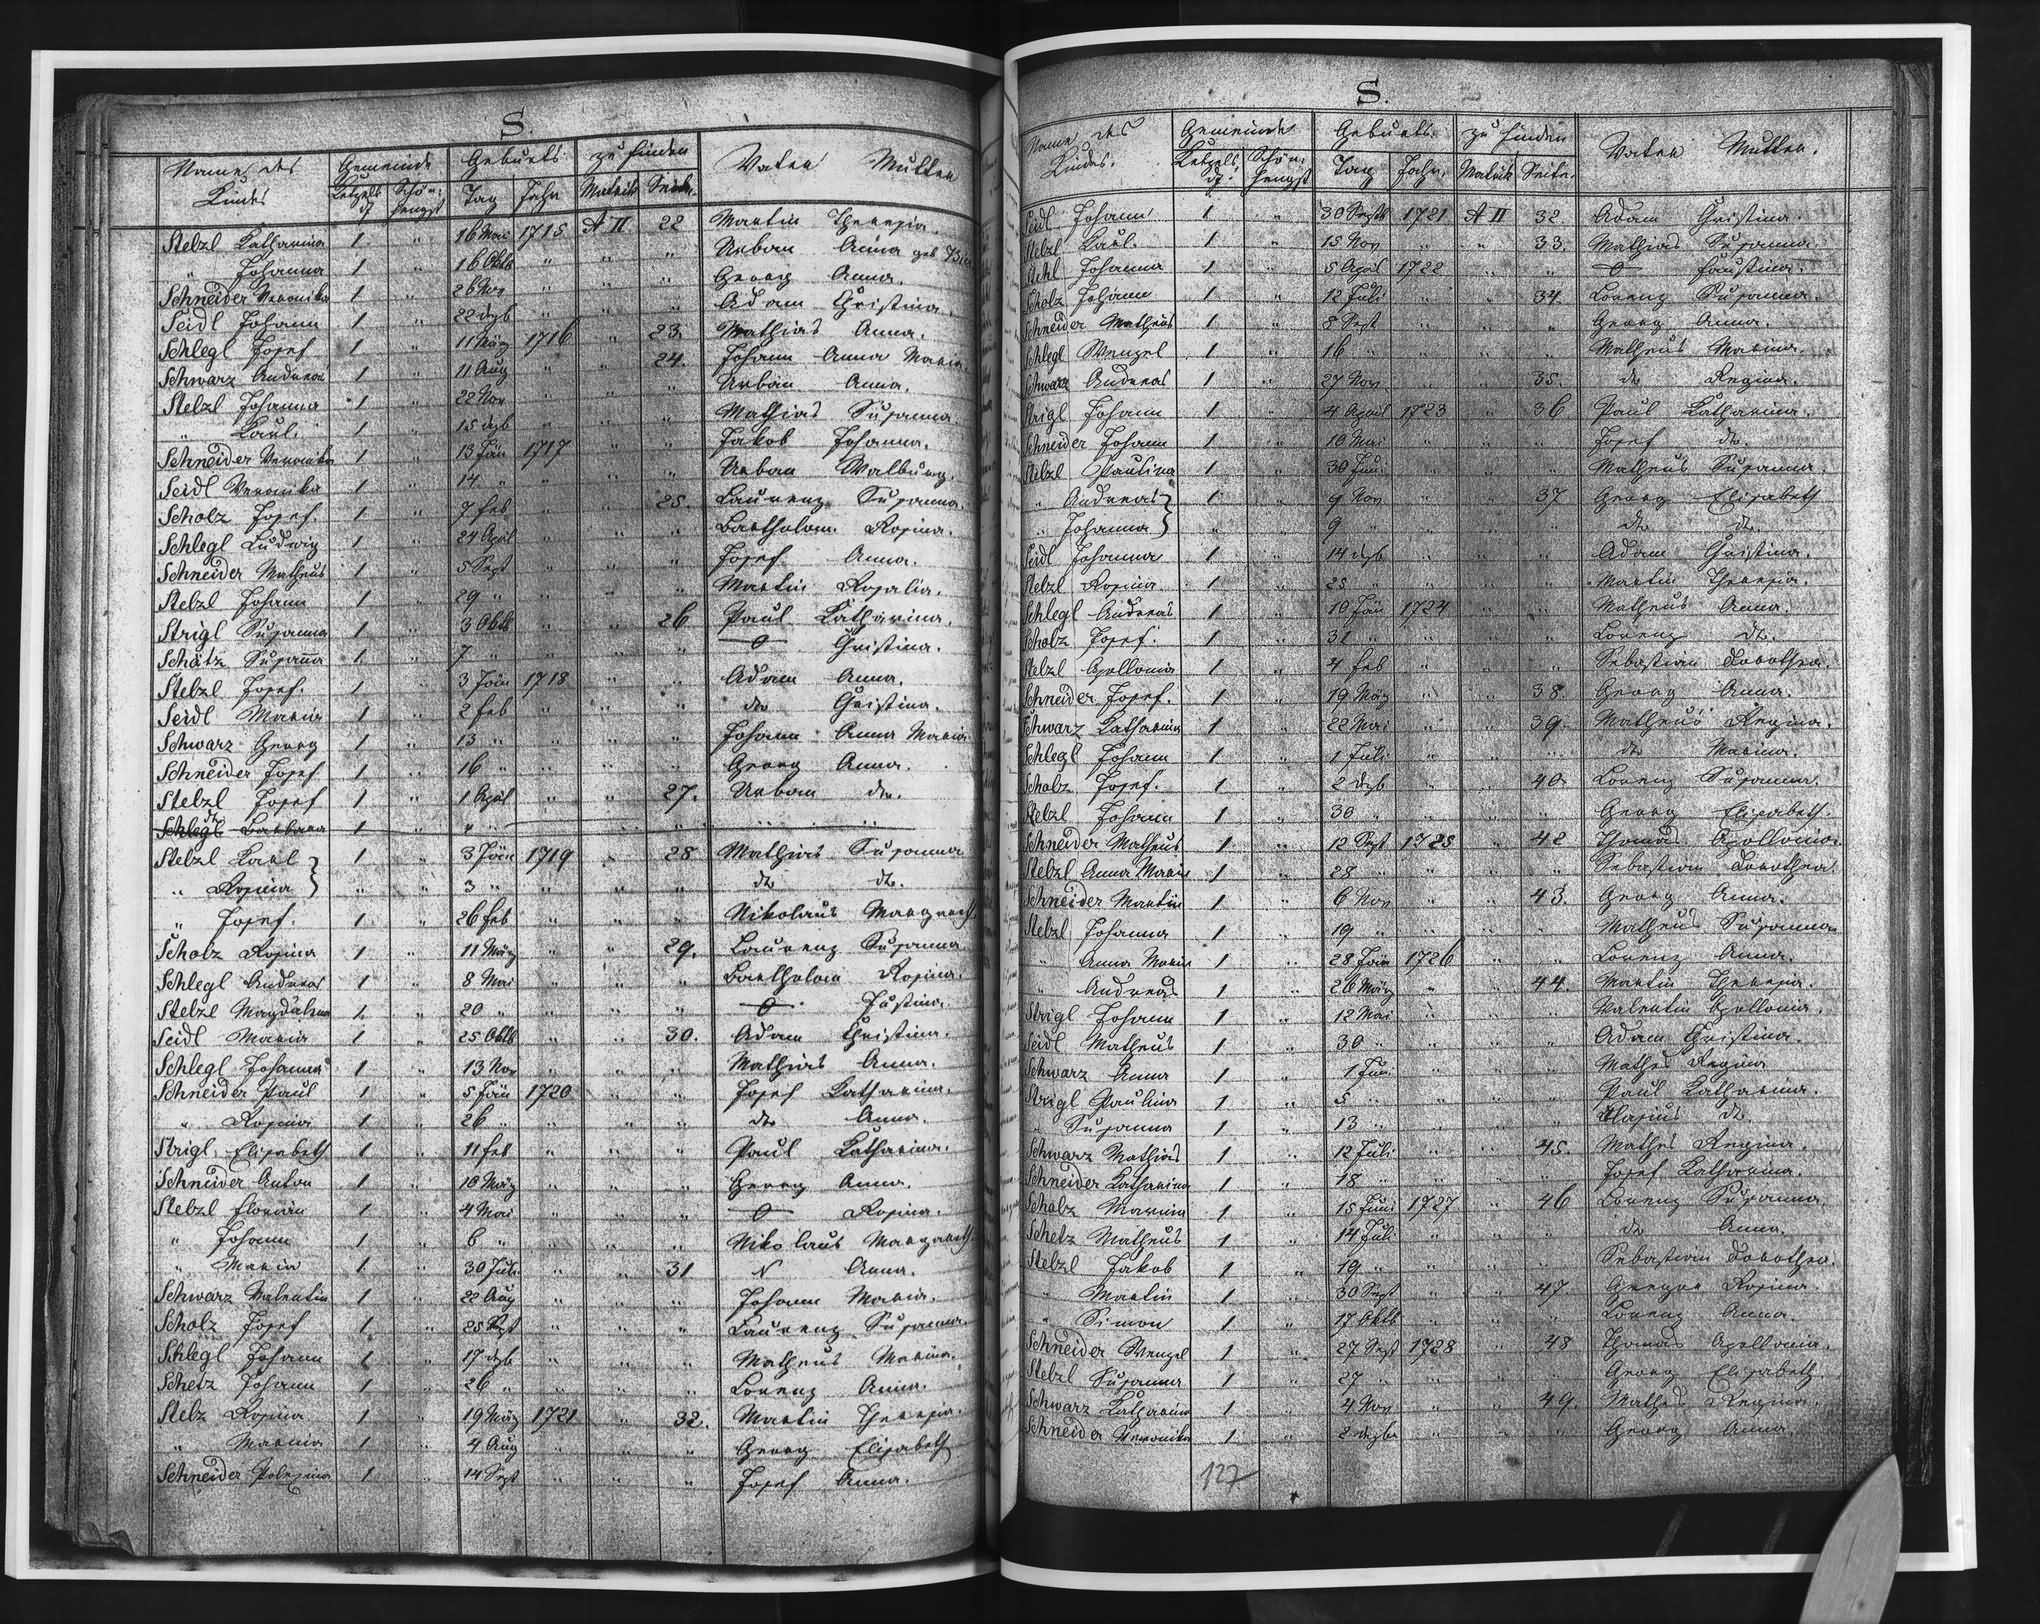 S.
Name des Kindes Gemeinde Geburts zu finden Vater Mutter
Ketzels df Schön: hengst Tag Jahr Matrik Seite.
Stelzl Katharina 1 " 16 Mai 1715 A II 22 Martin Theresia.
" Johanna 1 " 16 Oktb " " " Urban Anna geb
Schneider Veronika 1 " 26 Nov " " " Georg Anna.
Seidl Johann 1 " 22 dzb " " " Adam Christina.
Schlegl Josef 1 " 11 März 1716 " 23. Mathias Anna.
Schwarz Andreas 1 " 11 Aug " " 24. Johann Anna Maria.
Stelzl Johanna 1 " 22 Nov " " " Urban Anna.
" Karl. 1 " 15 dzb " " " Mathias Susanna.
Schneider Veronika 1 " 13 Jän 1717 " " Jakob Johanna.
Seidl Veronika 1 " 14 " " " " Urban Walburg.
Scholz Josef. 1 " 7 feb " " 25. Laurenz Susanna.
Schlegl Ludwig 1 " 24 April " " " Bartholom. Rosina.
Schneider Matheus 1 " 5 Sept " " " Josef Anna.
Stelzl Johann 1 " 29 " " " " Martin Rosalia.
Strigl Susanna 1 " 3 Oktb " " 26 Paul Katharina.
Schätz Susana 1 " 7 " " " " 0 Christina.
Stelzl Josef. 1 " 3 Jän 1718 " " Adam Anna.
Seidl Maria 1 " 2 feb " " " dto Christina.
Schwarz Georg 1 " 13 " " " " Johann Anna Maria
Schneider Josef 1 " 16 " " " " Georg Anna.
Stelzl Josef 1 " 1 April " " 27. Urban dto.
Schlegl Barbara 1 " " " " " " " "
Stelzl Karl 1 " 3 Jän 1719 " 28 Mathias Susanna
" Rosina " " 3 " " " " dto dto.
" Josef. 1 " 26 feb " " " Nikolaus Margareth.
Scholz Rosina 1 " 11 März " " 29. Laurenz Susanna
Schlegl Andreas 1 " 8 Mai " " " Bartholom Rosina.
Stelzl Magdalena 1. " 20 " " " " 0 Justina.
Seidl Maria 1 " 25 Oktb " " 30. Adam Christina.
Schlegl Johanna 1 " 13 Nov " " " Mathias Anna.
Schneider Paul 1 " 5 Jän 1720 " " Josef Katharina.
" Rosina 1 " 26 " " " " dto Anna.
Strigl Elisabeth 1 " 11 feb " " " Paul Katharina.
Schneider Anton 1 " 10 März " " " Georg Anna.
Stelzl Florian 1 " 4 Mai " " " 0 Rosina.
" Johann 1 " 6 " " " " Nikolaus Margareth.
" Maria 1. " 30 Juli " " 31 N Anna.
Schwarz Valentin 1 " 22 Aug " " " Johann Maria.
Scholz Josef 1 " 25 Sept " " " Laurenz Susanna.
Schlegl Johann 1 " 17 dzb " " " Matheus Marina.
Schetz Johann 1 " 26 " " " " Lorenz Anna.
Stelz Rosina 1 " 19 März 1721 " 32. Martin Theresia.
" Marina 1 " 4 Aug " " " Georg Elisabeth
Schneider Polexina 1 " 14 Sept " " " Josef Anna.
S.
Name des Kindes. Gemeinde Geburts. zu finden Vater Mutter.
Ketzels df. Schön: hengst Tag Jahr. Matrik Seite.
Seidl Johann 1 " 30 Septb 1721 A II 32. Adam Christina.
Stelzl Karl. 1 " 15 Nov " " 33. Mathias Susanna.
Johanna 1 " 5 April 1722 " " 0 Faustina.
Scholz Johann 1 " 12 Juli " " 34. Lorenz Susanna.
Schneider Matheus 1 " 8 Sept " " " Georg Anna.
Schlegl Wenzel 1 " 16 " " " " Matheus Marina.
Schwarz Andreas 1 " 27 Nov " " 35. dto Regina.
Strigl Johann 1 " 4 April 1723 " 36 Paul Katharina.
Schneider Johann 1 " 10 Mai " " " Josef dto.
Stelzl Paulina 1 " 30 Juni " " " Matheus Susanna.
" Andreas 1 " 9 Nov " " 37 Georg Elisabeth
" Johanna " " 9 " " " " dto dto.
Seidl Johanna 1 " 14 dzb " " " Adam Christina.
Stelzl Rosina 1 " 25 " " " " Martin Theresia.
Schlegl Andreas 1 " 10 Jän 1724 " " Matheus Anna.
Scholz Josef. 1 " 31 " " " " Lorenz dto.
Stelzl Apollonia 1 " 4 feb " " " Sebastian Dorothea.
Schneider Josef. 1 " 19 März " " 38. Georg Anna.
Schwarz Katharina 1 " 22 Mai " " 39. Matheus Regina.
Schlegl Johann 1 " 1 Juli " " " dto Marina.
Scholz Josef. 1 " 2 dzb " " 40. Lorenz Susanna.
Stelzl Johann 1 " 30 " " " " Georg Elisabeth.
Schneider Matheus 1 " 12 Sept 1725 " 42 Thomas Apollonia.
Stelzl Anna Maria 1 " 28 " " " " Sebastian Dorothea.
Schneider Martin 1 " 6 Nov " " 43. Georg Anna.
Stelzl Johanna 1 " 19 " " " " Matheus Susanna
" Anna Maria 1 " 28 Jän 1726 " " Lorenz Anna.
" Andreas 1 " 26 März " " 44. Martin Theresia.
Strigl Johann 1 " 12 Mai " " " Valentin Apollonia.
Seidl Matheus 1 " 30 " " " " Adam Christina.
Schwarz Anna 1 " 1 Juni " " " Mathes Regina
Strigl Paulina 1 " 5 " " " " Paul Katharina.
" Susanna 1 " 13 " " " " dto
Schwarz Mathias 1 " 12 Juli " " 45. Mathes Regina.
Schneider Katharina 1 " 18 " " " " Josef Katharina.
Scholz Marina 1 " 15 Juni 1727 " 46 Lorenz Susanna.
Schetz Matheus 1 " 14 Juli " " " dto Anna.
Stelzl Jakob 1 " 19 " " " " Sebastian Dorothea.
" Martin 1 " 30 Sept " " 47. Gregor Rosina.
" Simon 1 " 17 Oktb " " " Lorenz Anna.
Schneider Wenzel 1 " 27 Sept 1728 " 48 Thomas Apollonia.
Stelzl Susanna 1 " 27 " " " " Georg Elisabeth
Schwarz Katharina 1 " 4 Nov " " 49. Mathes Regina.
Schneider Veronika 1 " 2 dezbr " " " Georg Anna
127